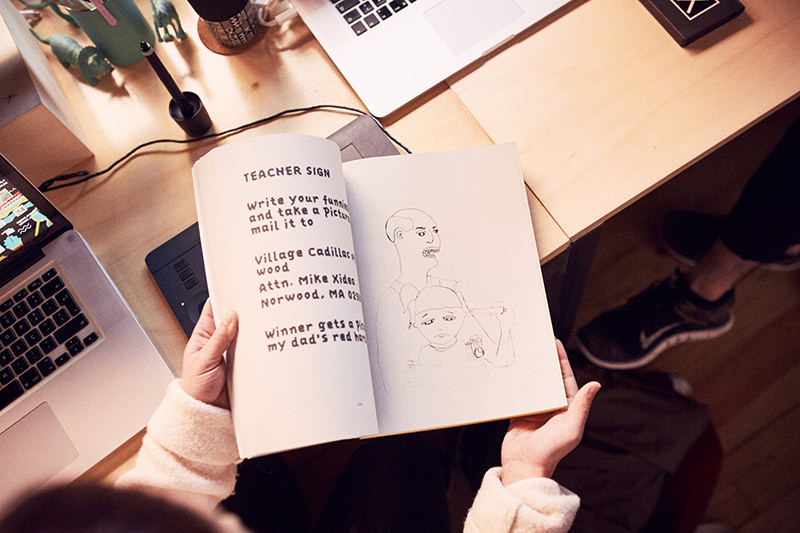 TEACHER SIGN
Write your
and take a Picture
mail it to
Village Cadillac
wood
Attn. Mike
Norwood, MA
Winner gets a
my dad's red